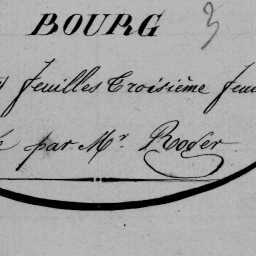 BOURG 3
feuilles Troisième feui
par Mr. Roder